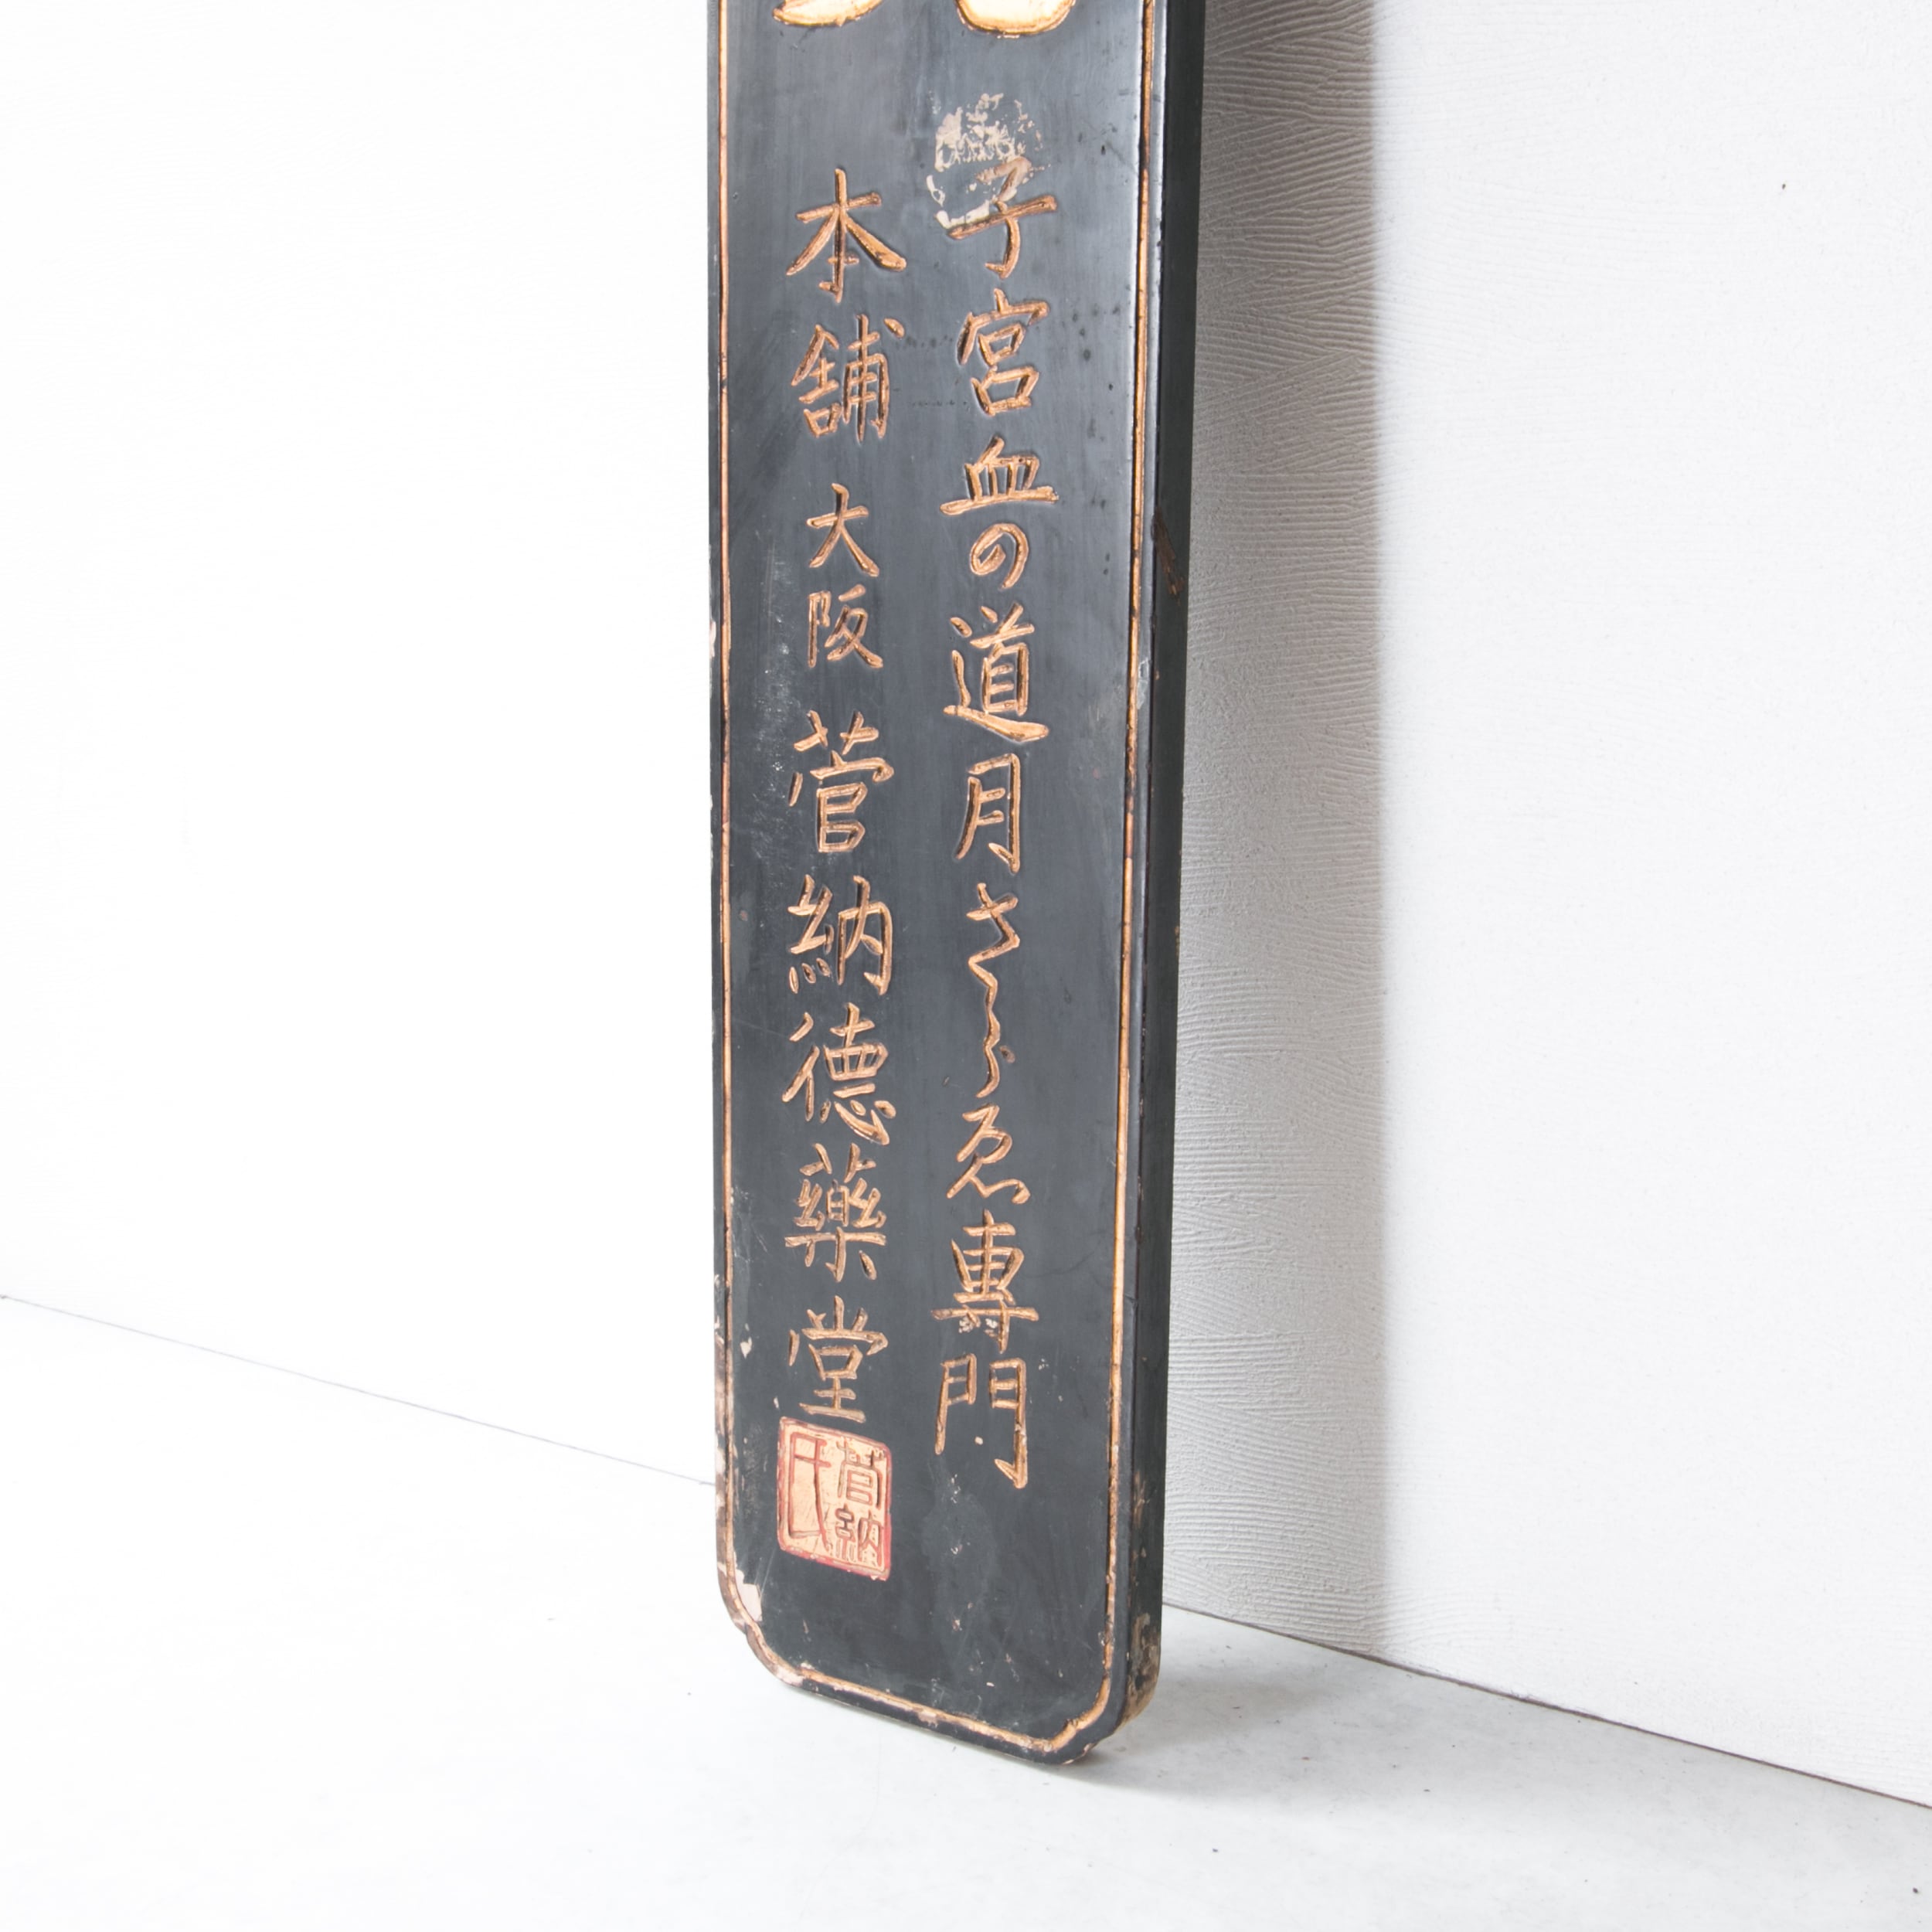 子宮血の道月さらゑ專門
本舖 大阪 菅納德藥堂
菅納
氏